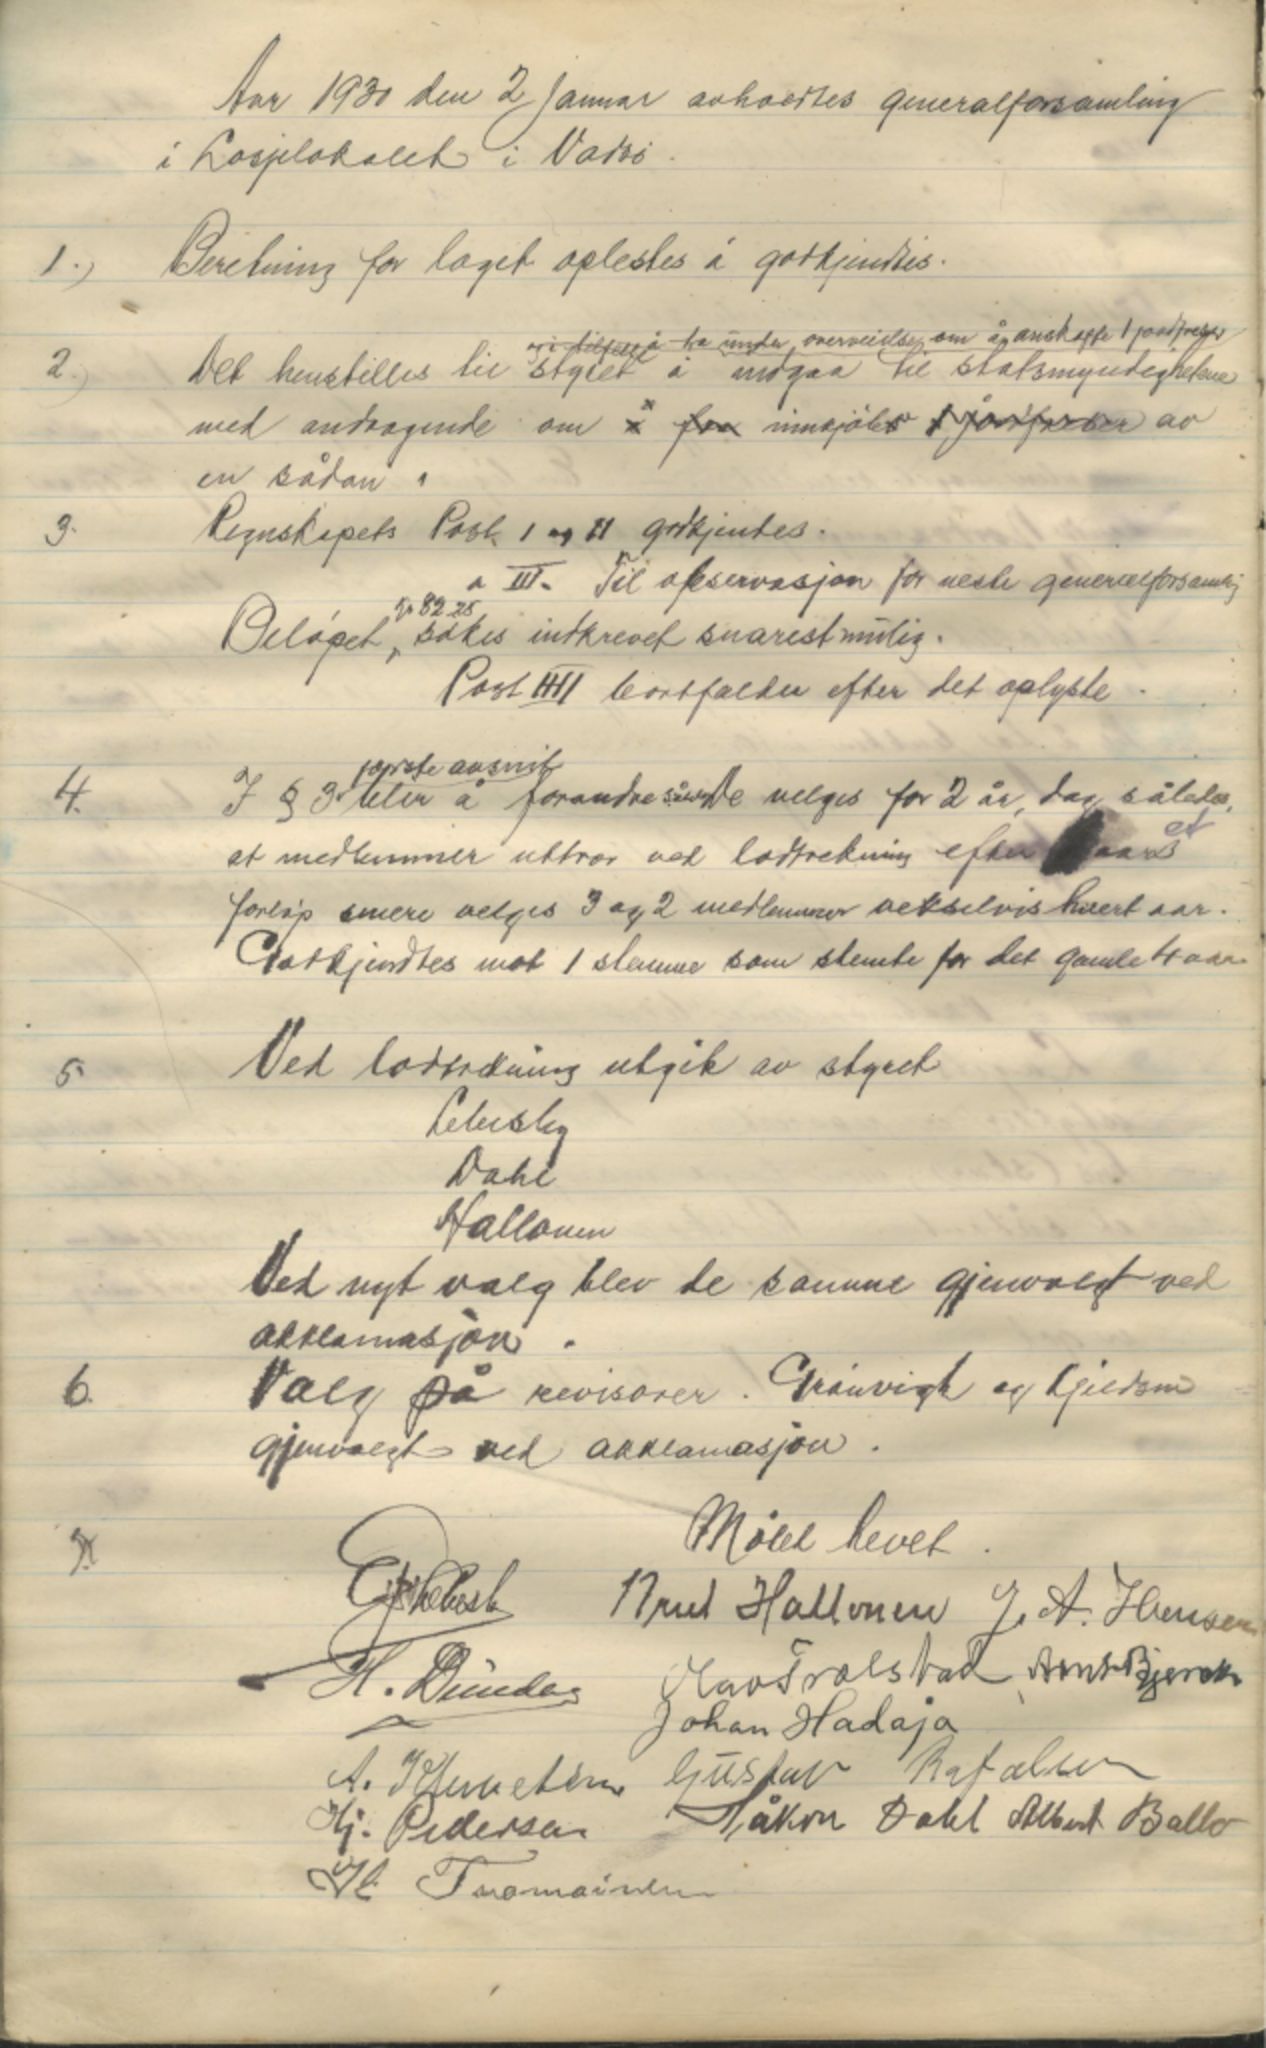 Aar 1930 den 2 Januar avholdtes generalforsamling
i Losjelokalet i Vadsö.
1.) Beretning for laget oplestes å godkjendtes.
og i tilfelle å ta under overveielse om å anskaffe 1 jordfreser
2.) Det henstilles til styret å indgaa til statsmyndighetene
med andragende om å fra innkjöb 1 jordfreser av
en sådan.
3. Regnskapets Post 1 og II godkjentes.
" III. Til observasjon for neste generalforsamling
kr 82.25
Belöpet, sökes indkrevet snarest mulig.
Post IIII bortfalder efter det oplyste.
förste avsnit
4. I § 3 blir å forandre således De velges for 2 år, dog således,
at medlemmer uttrær ved lodtrekning efter et aars
forlöp senere velges 3 og 2 medlemmer vekselvis hvert aar.
Godkjendtes mot 1 stemme som stemte for det gamle 4 aar.
5 Ved lodtrekning utgik av styret
Lebesby
Dahl
Hallonen
Ved nyt valg blev de samme gjenvalgt ved
akklamasjon.
6. Valg på revisorer. Grönvigh og Kjeldsen
gjenvalgt ved akklamasjon.
7. Mötet hevet.
Knut Hallonen J. A. Hansen
H. Dündas Olav Trælstad Arnt Bjerck
Johan Hadaja
A. Gustav Rafaelsen
Hj. Pedersen Håkon Dahl Albert Ballo
H. Tuomainen